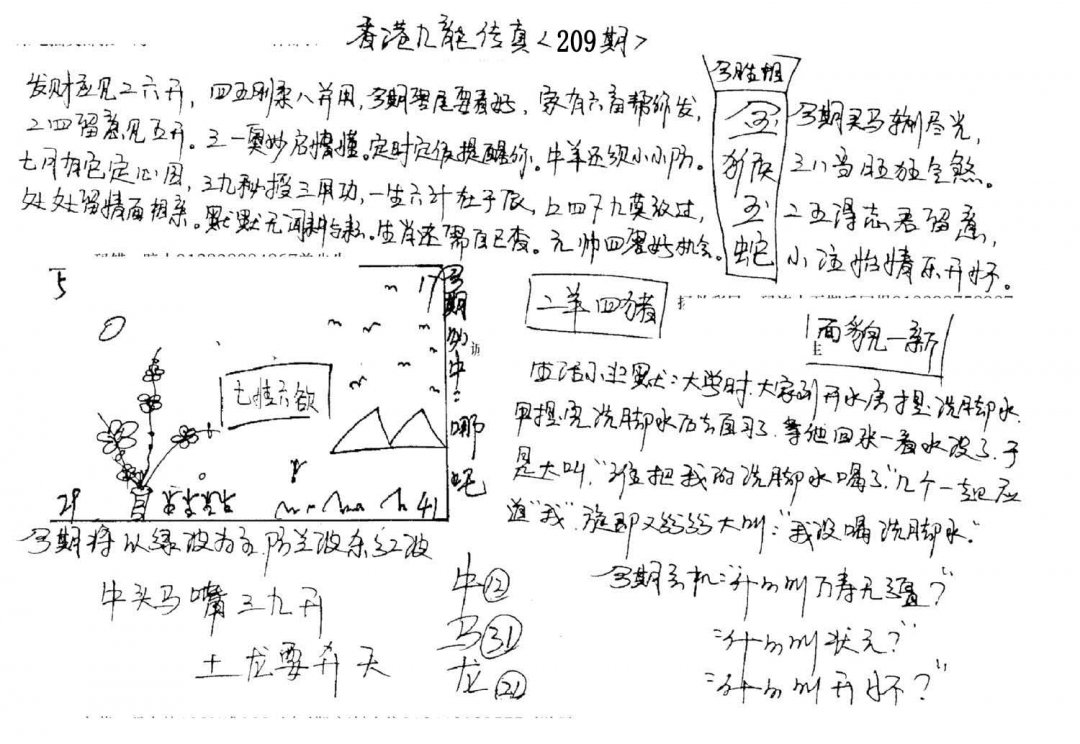 香港九龍传真<209期>
发财再见二六开，四五刚柔八并用，今期双尾要看好，家有六畜帮你发，
二四留意见五开。三一奥妙启情懂。定时定位提醒你。牛羊还须小小防。
七月有它定心因，三九秘授三用功，一生六计在于辰，五四下九莫放过，
处处留情面相亲。默默无闻耕与耘。生肖还需自己查。元帅四双好机会。
今期买马输尽光，
三八当旺狂生煞。
二五得志君留意，
小注怡情乐开怀。
今胜相
金
猴
玉
蛇
5
17
七情六欲
29
41
今期
中：哪
吒
二羊四猪
面貌一新
生活小幽默：大学时，大家到开水房提洗脚水，
甲提完洗脚水后去自习了，等他回来一看水没了，于
是大叫，“谁把我的洗脚水喝了”，几个一起应
道“我”，旋即又纷纷大叫：“我没喝洗脚水。”
今期将以绿波为主，防兰波杀红波
牛头马嘴三九开
土龙要升天
牛⑫
马㉛
龙㉑
今期玄机：“什么叫万寿无疆？”
“什么叫状元？”
“什么叫开怀？”